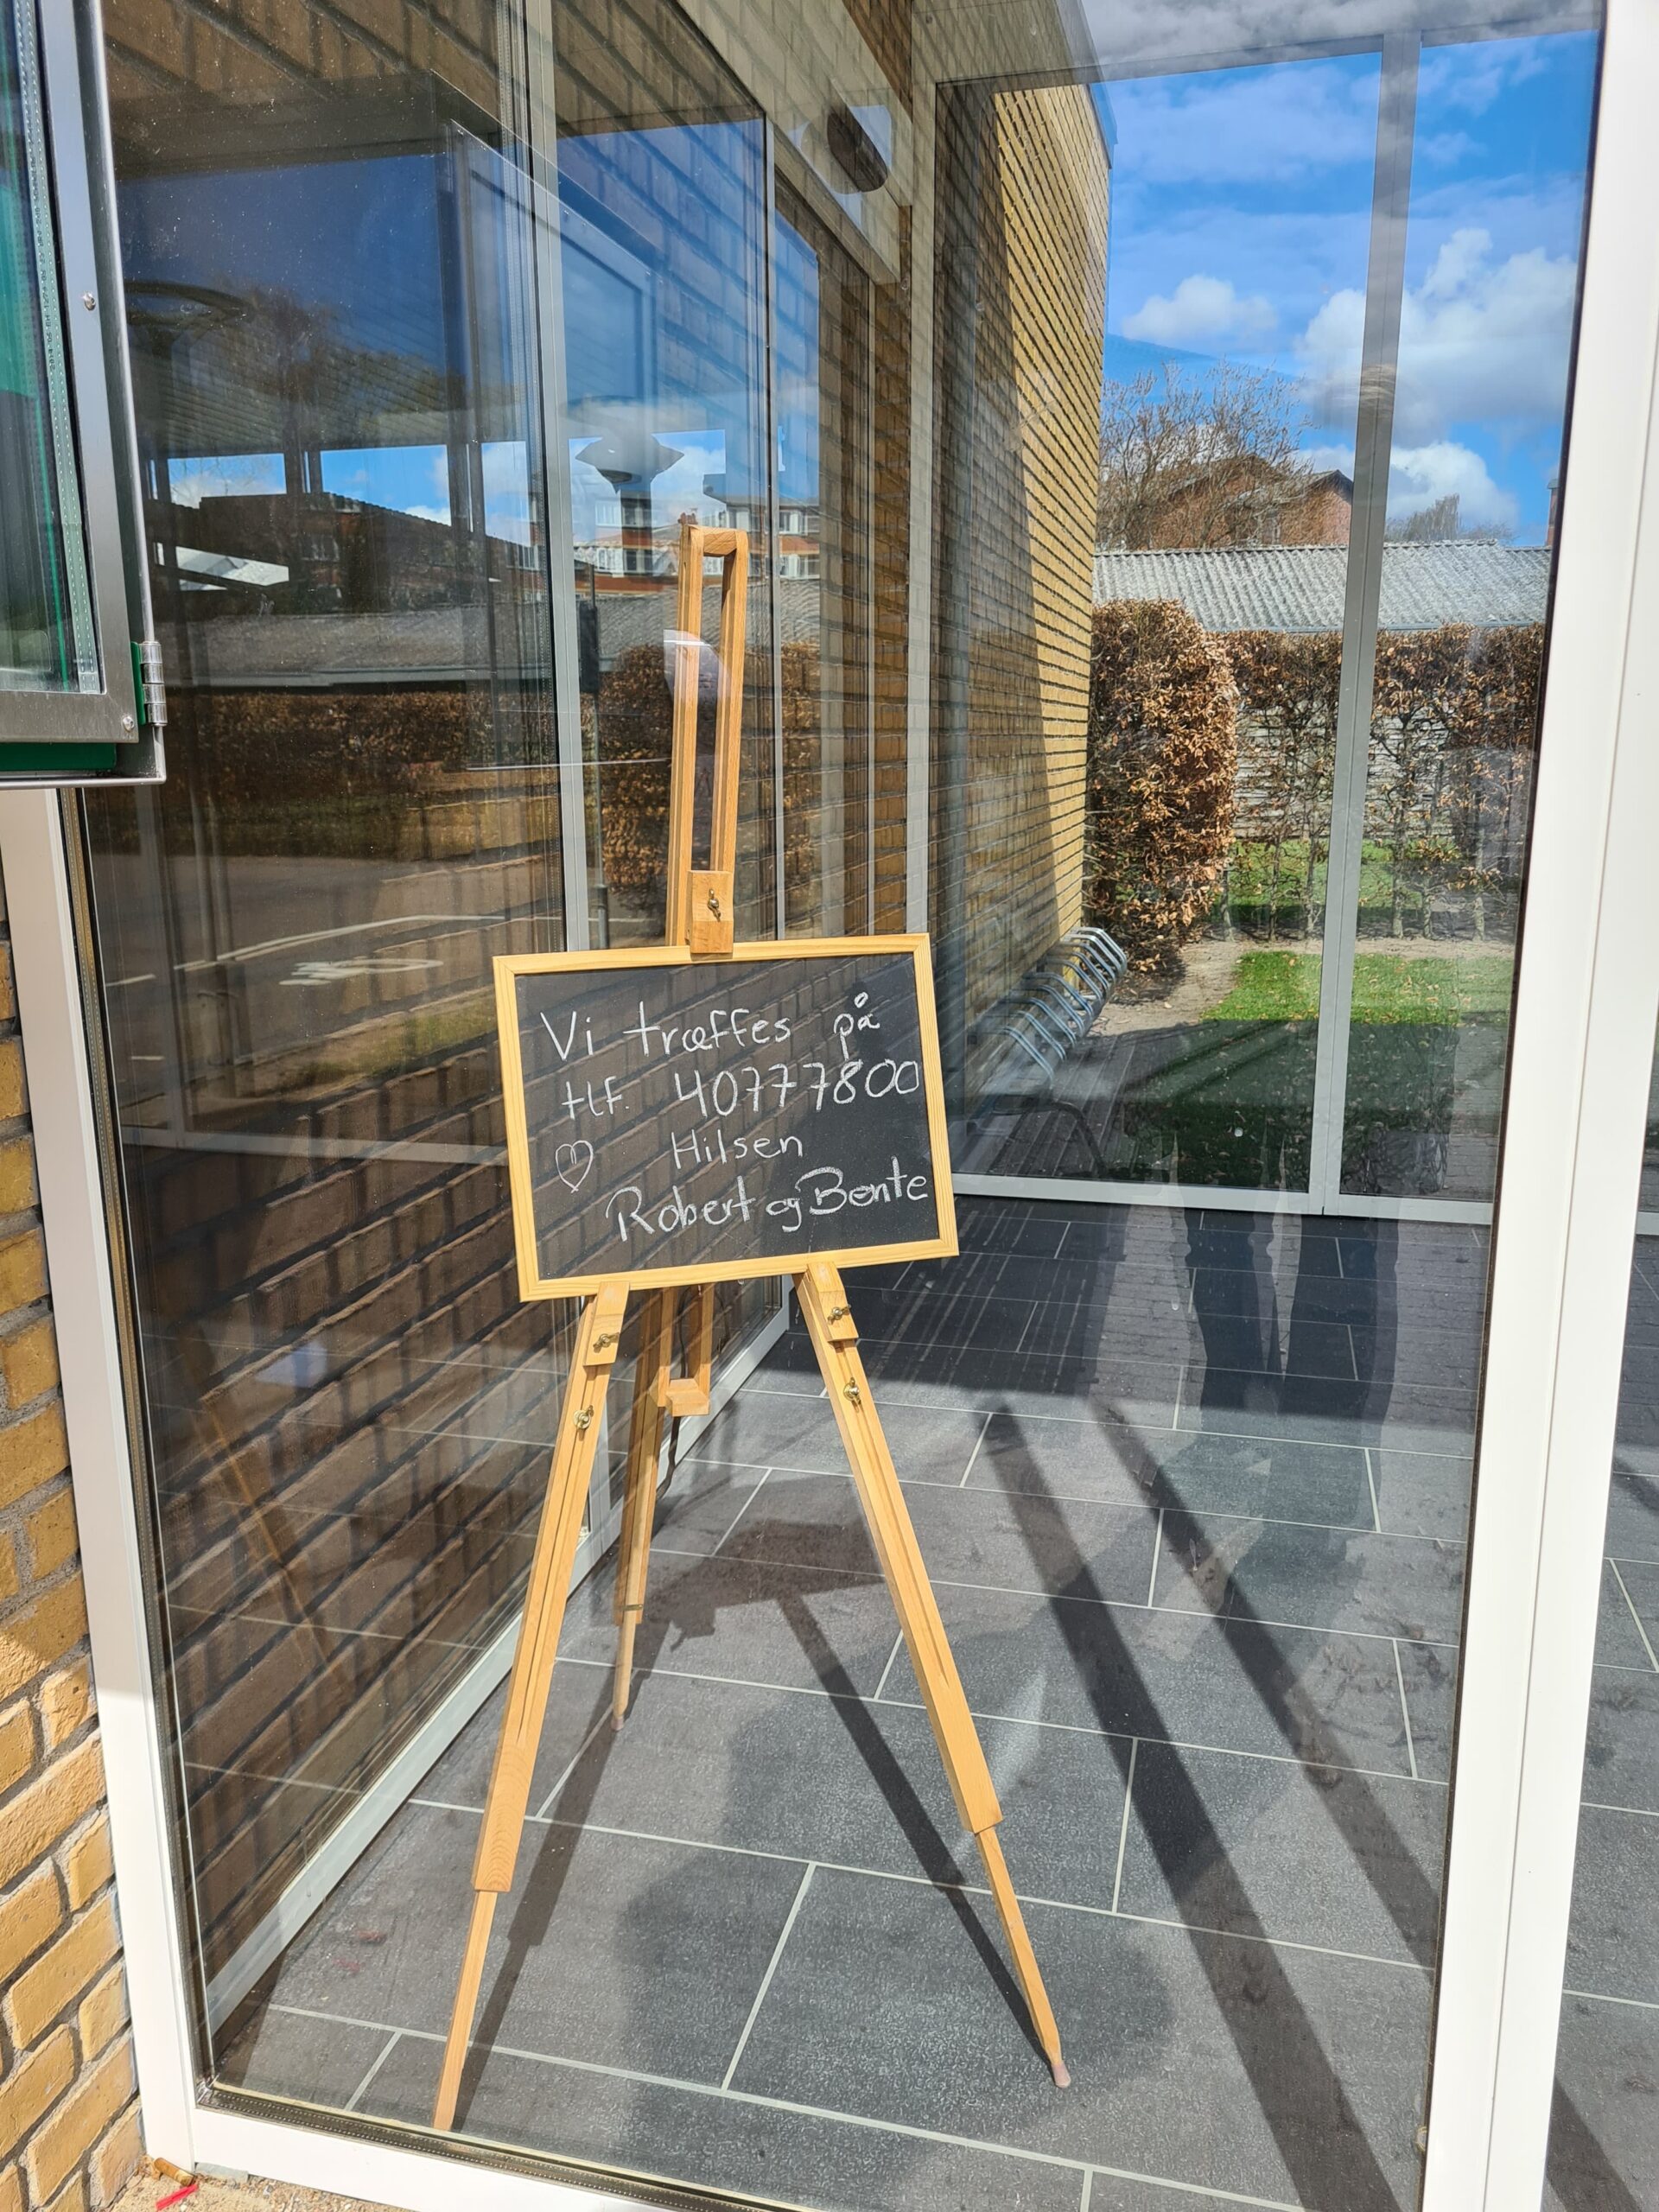 Vi træffes på
tlf. 40777800
♡ Hilsen
Robert og Bente